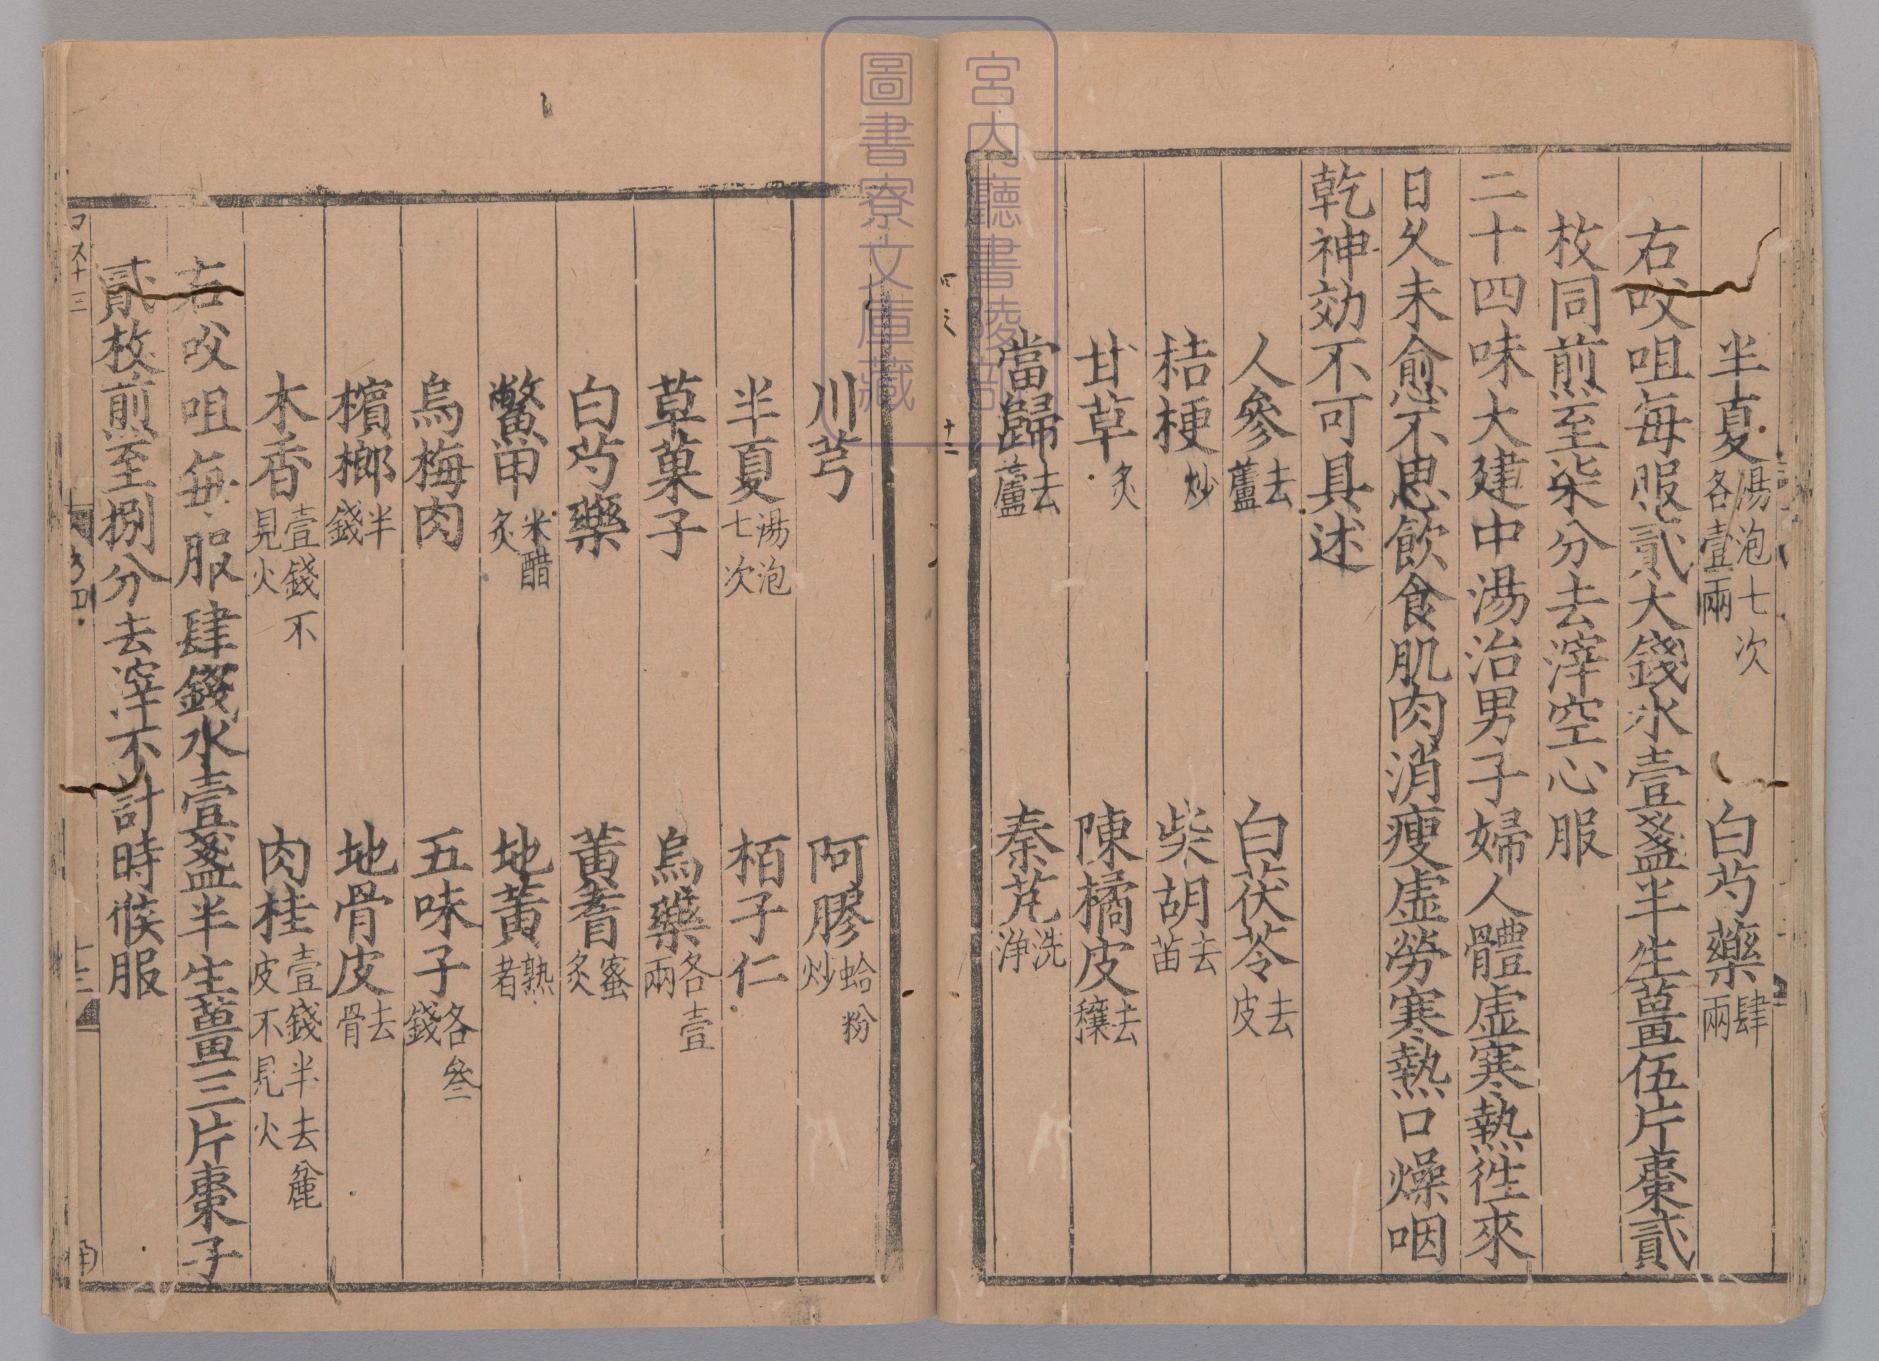 半夏湯泡七次各壹兩 白芍藥肆兩
右㕮咀每服貳大錢水壹盞半生薑伍片棗貳
枚同煎至柒分去滓空心服
二十四味大建中湯治男子婦人體虛寒熱徃來
日久未愈不思飲食肌肉消瘦虛勞寒熱口燥咽
乾神効不可具述
人參去蘆 白茯苓去皮
桔梗炒 柴胡去苗
甘草炙 陳橘皮去穰
當歸去蘆 秦艽洗浄
川芎 阿膠蛤粉炒
半夏湯泡七次 栢子仁
草菓子 烏藥各壹兩
白芍藥 黃耆蜜炙
鱉甲米醋炙 地黃熟者
烏梅肉 五味子各叄錢
檳榔半錢 地骨皮去骨
木香壹錢不見火 肉桂壹錢半去麁皮不見火
右㕮咀每服肆錢水壹盞半生薑三片棗子
貳枚煎至捌分去滓不計時候服
宮内廳書陵部
圖書寮文庫藏